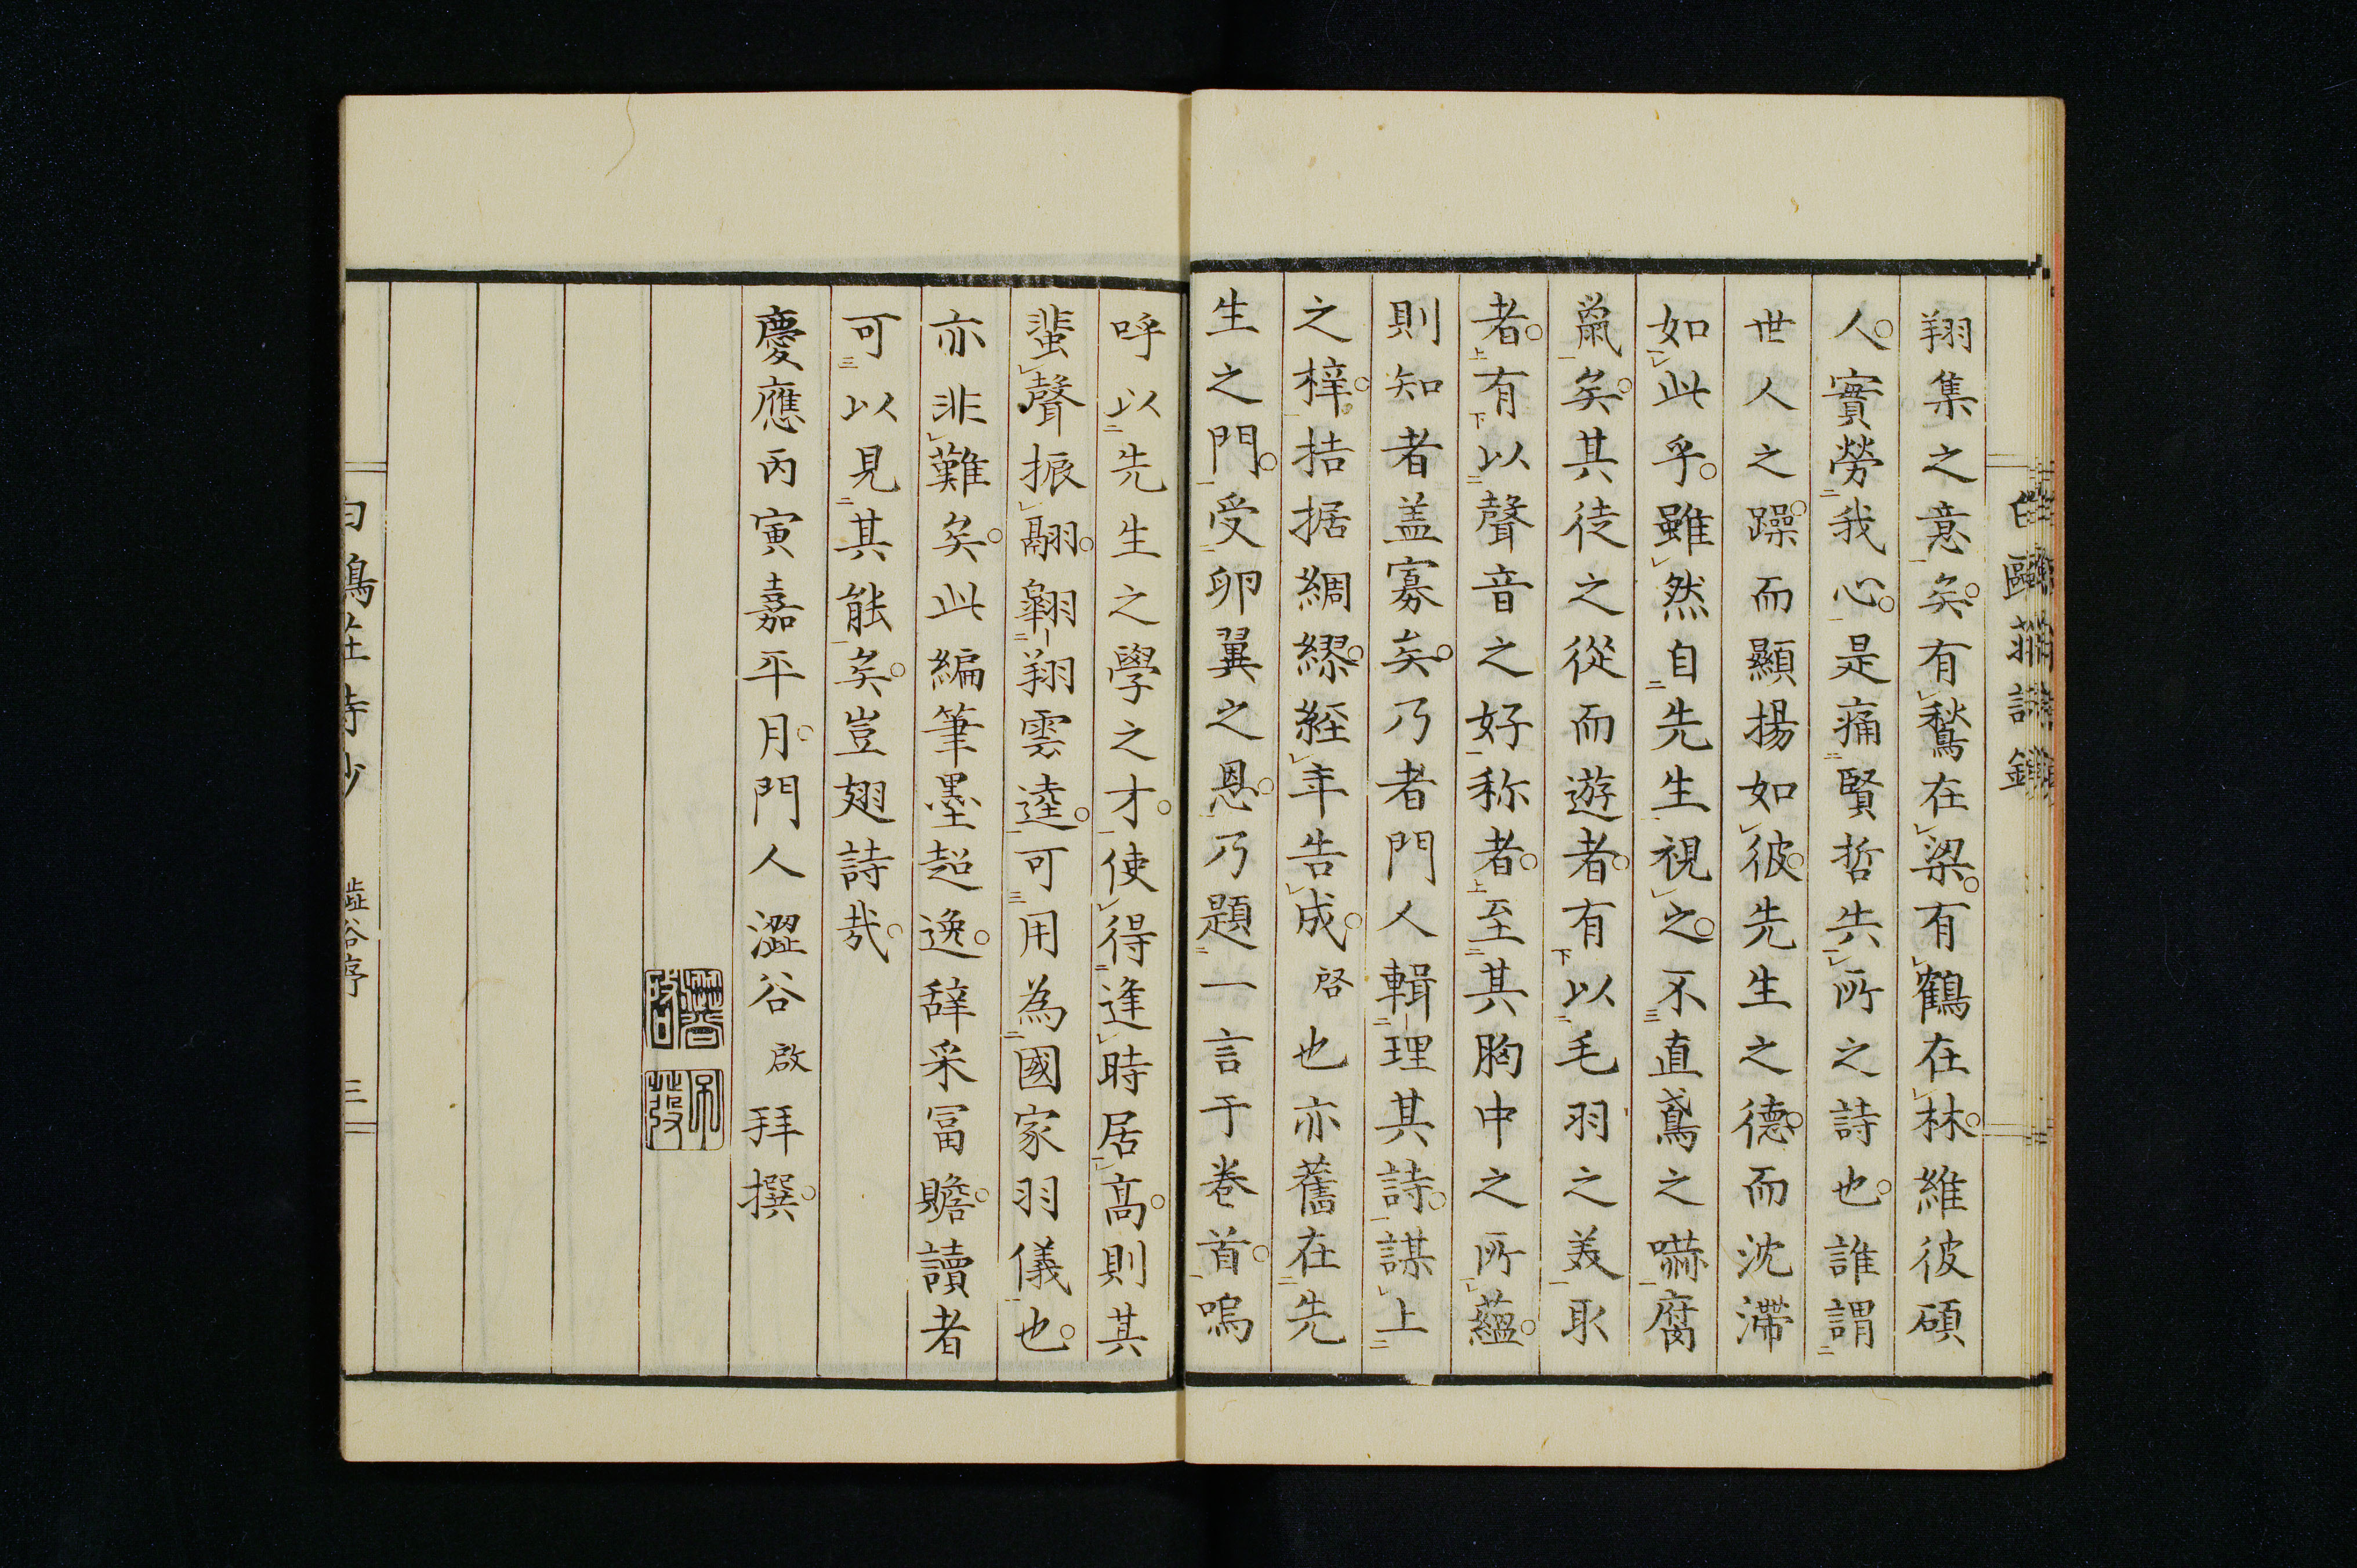 翔集之意矣有鶖在梁有鶴在林維彼碩
人實勞我心是痛賢哲失所之詩也誰謂
世人之躁而顯揚如彼先生之德而沈滯
如此乎雖然自先生視之不直鳶之嚇腐
鼠矣其徒之從而遊者有以毛羽之美取
者有以聲音之好称者至其胸中之所蘊
則知者盖寡矣乃者門人輯理其詩謀上
之梓拮据綢繆経年告成啓也亦舊在先
生之門受卵翼之恩乃題一言于卷首嗚
呼以先生之學之才使得逢時居高則其
蜚聲振翮翱翔雲逵可用為國家羽儀也
亦非難矣此編筆墨超逸辞采冨贍讀者
可以見其能矣豈翅詩哉
慶應丙寅嘉平月門人澀谷啟拜撰
白鷗莊詩鈔 澁谷序 三